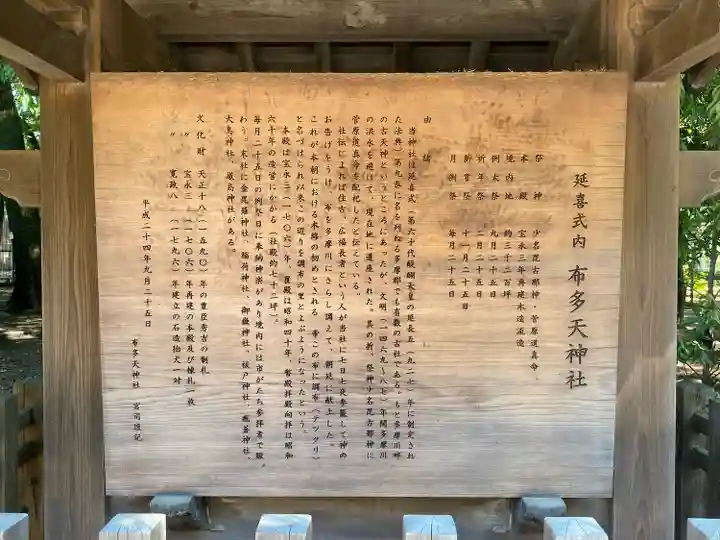 延喜式内 布多天神社
祭神 少名毘古那神、菅原道真命、
本殿 宝永三年再建木造流造
境内地 約三千二百坪
例大祭 九月二十五日
祈年祭 二月二十五日
新嘗祭 十一月二十五日
月例祭 毎月二十五日
由緒
当神社は延喜式(第六十代醍醐天皇の延長五(九二七)年に制定され
た法典)第九巻に名を列ねる多摩郡でも有数の古社である。もと多摩川畔
の古天神というところにあったが、文明(一四六九〜八七)年間多摩川
の洪水を避けて、現在地に遷座された。其の折、祭神少名毘古那神に
菅原道真命を配祀したと伝えている。
社伝によれば往古、広福長者という人が当社に七日七夜参籠して神の
お告げをうけ、布を多摩川にさらし調えて、朝廷に献上した。
これが本朝における木綿の初めとされる 帝この布に調布(テヅクリ)
と名づけられ以来、この辺りを調布の里とよぶようになったという。
本殿は宝永三(一七〇六)年、覆殿は昭和四十年、幣殿拝殿向拝は昭和
六十年の造営にかかる(社殿約七十二坪)。
毎月二十五日の例祭日に奉納神楽があり境内には市がたち参拝者で賑
わう。末社に金毘羅神社、稲荷神社、御嶽神社、祓戸神社、疱瘡神社、
大鳥神社、厳島神社がある。
文化財 天正十八(一五九〇)年の豊臣秀吉の制札
〃 宝永三(一七〇六)年再建の本殿及び棟札一枚
〃 寛政八(一七九六)年建立の石造狛犬一対
平成二十四年九月二十五日
布多天神社 宮司謹記